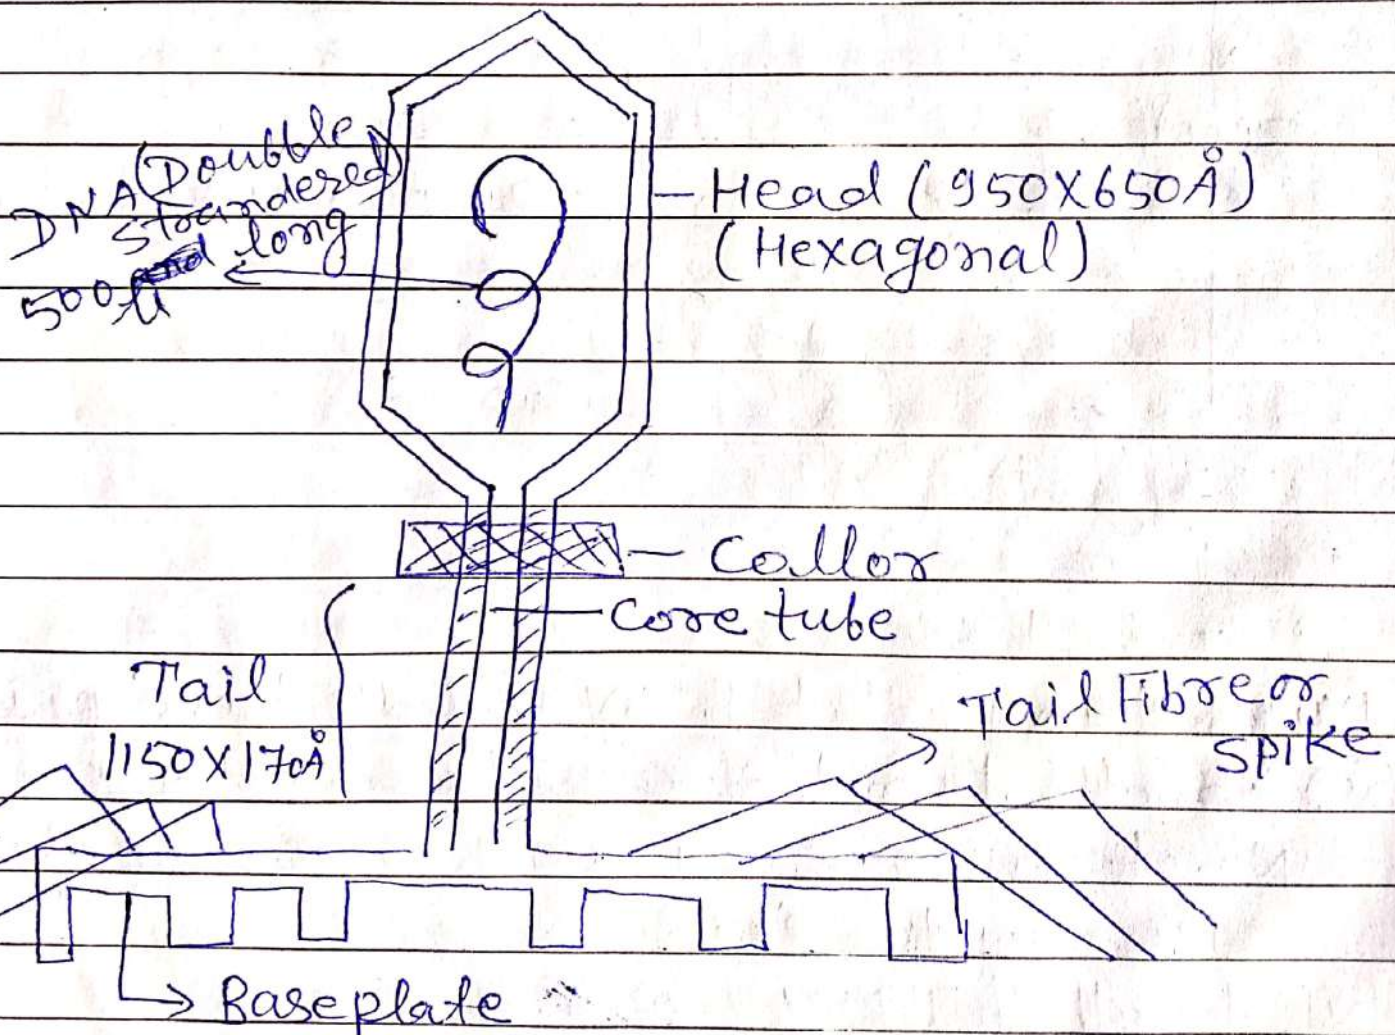 DNA (Doubble
strandered)
500 μ long
Head (950X650Å)
(Hexagonal)
Collor
Core tube
Tail
1150X170Å
Tail Fibre or
spike
Baseplate